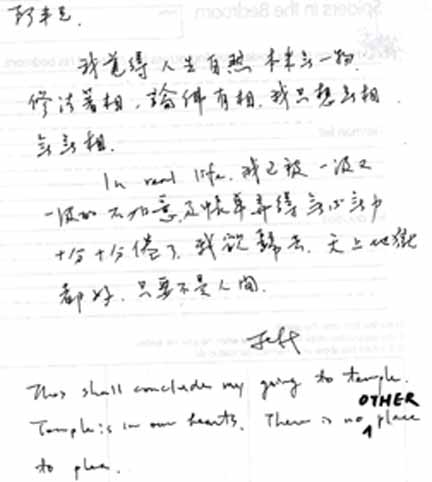 Spiders in the Bedroom
兄.
我覺得人生自然 本来无一物.
修法着相, 論佛有相, 我只想无相.
无无相.
In real life, 我已被一波又
一波的不如意及帳单弄得无心无力
十分十分倦了, 我欲歸去, 天上地獄
都好, 只要不是人间.
Jeff
This shall conclude my going to temple.
OTHER
Temple is in our hearts. There is no place
to plea.